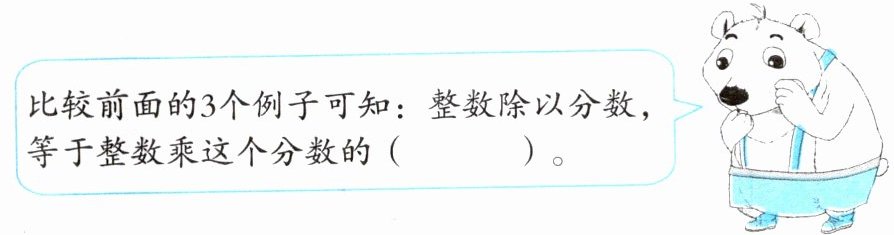 比较前面的3个例子可知：整数除以分数，
等于整数乘这个分数的（　　　）。